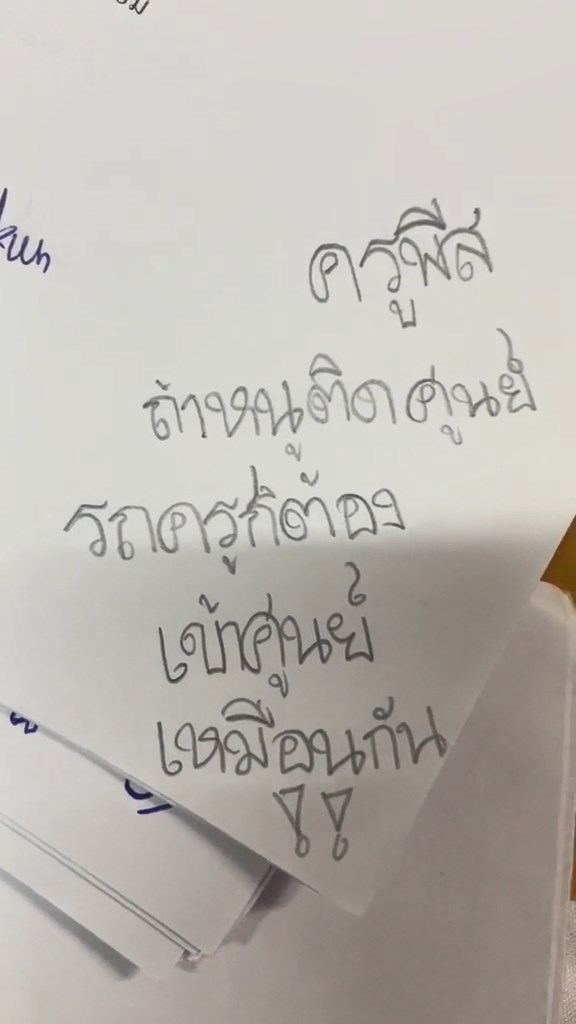 ครูพีส
ถ้าหนูติดศูนย์
รถครูก็ต้อง
เข้าศูนย์
เหมือนกัน
!!